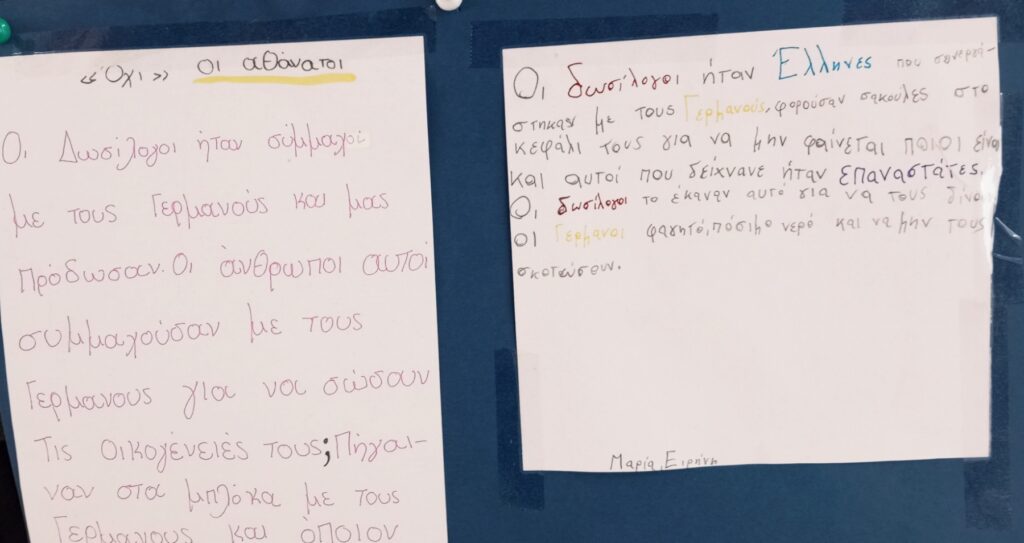 «Όχι» οι αθάνατοι
Οι Δωσίλογοι ήταν σύμμαχοι
με τους Γερμανούς και μας
πρόδωσαν. Οι άνθρωποι αυτοί
συμμαχούσαν με τους
Γερμανους για να σώσουν
Τις οικογένειές τους; Πήγαι-
ναν στα μπλόκα με τους
Γερμανους και όποιον
Οι δωσίλογοι ήταν Έλληνες που συνεργά-
στηκαν με τους Γερμανούς, φορούσαν σακούλες στο
κεφάλι τους για να μην φαίνεται ποιοι είναι
και αυτοί που δείχνανε ήταν επαναστάτες.
Οι δωσίλογοι το έκαναν αυτό για να τους δίνουν
οι Γερμανοι φαγητό, πόσιμο νερό και να μην τους
σκοτώσουν.
Μαρία, Ειρήνη